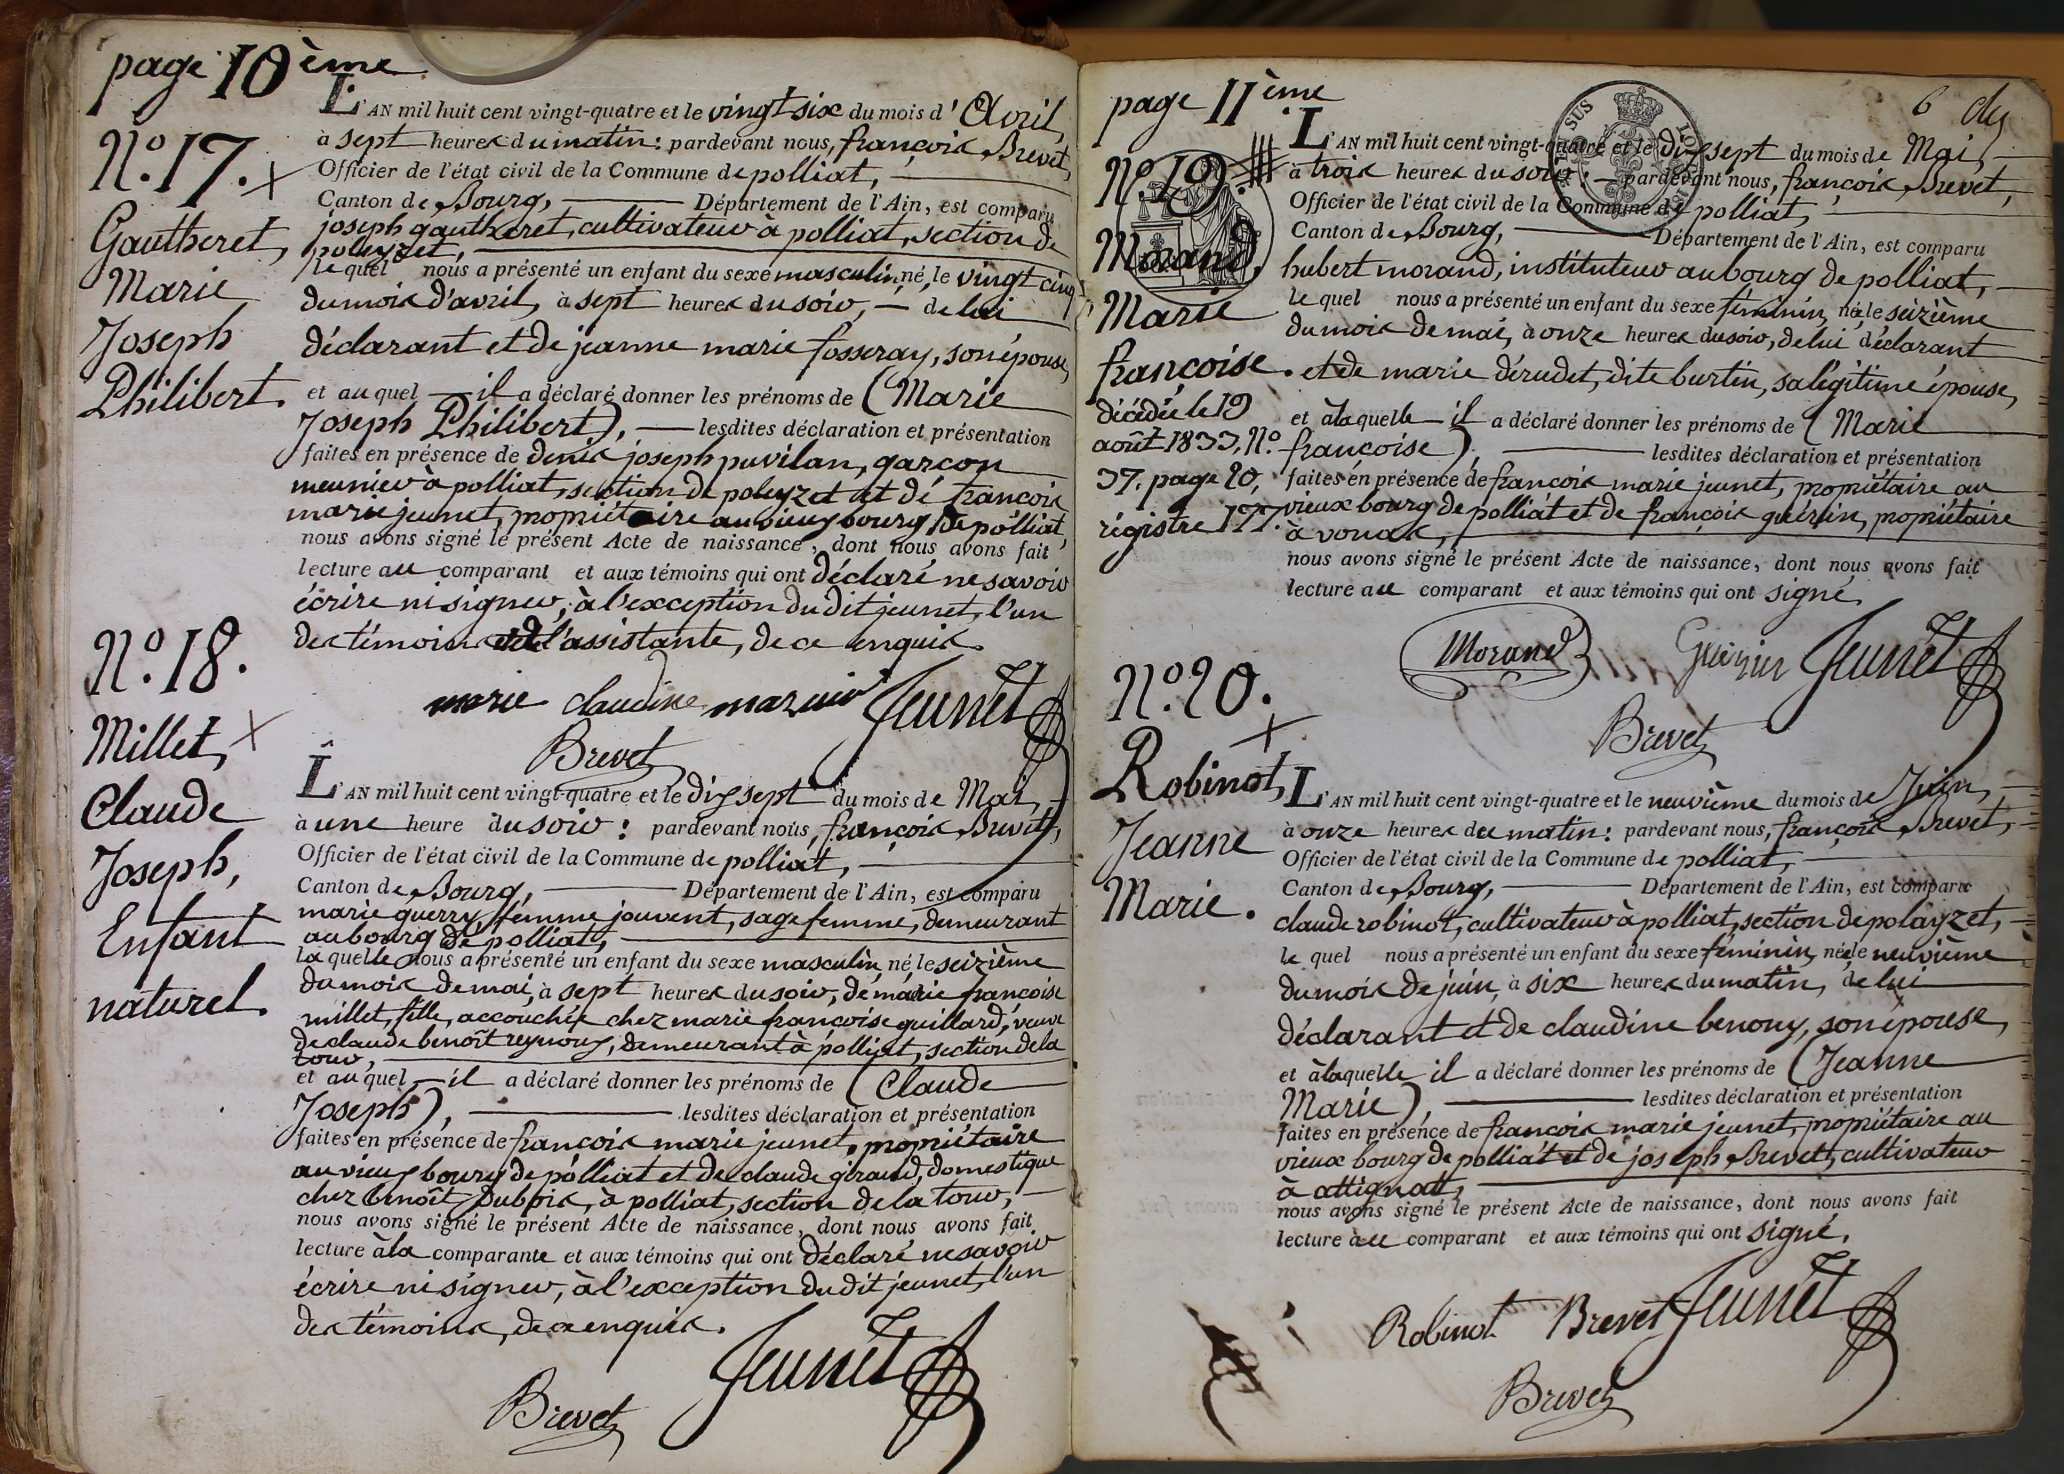 page 10ème
N.º 17.
Gautheret,
Marie
Joseph
Philibert.
L'AN mil huit cent vingt-quatre et le vingt six du mois d'Avril,
à sept heures du matin : pardevant nous, françois Brevet,
Officier de l'état civil de la Commune de polliat,
Canton de Bourg, Département de l'Ain, est comparu
joseph gautheret, cultivateur à polliat, section de
poleyzet,
le quel nous a présenté un enfant du sexe masculin, né, le vingt cinq
du mois d'avril, à sept heures du soir, — de lui
déclarant et de jeanne marie fosseray, son épouse,
et au quel — il a déclaré donner les prénoms de (Marie
Joseph Philibert), — lesdites déclaration et présentation
faites en présence de denis joseph puvilan, garçon
meunier à polliat, section de poleyzet et de françois
marie jeunet, propriétaire au vieux bourg de polliat,
nous avons signé le présent Acte de naissance, dont nous avons fait
lecture au comparant et aux témoins qui ont déclaré ne savoir
écrire ni signer, à l'exception du dit jeunet, l'un
des témoins et de l'assistante, de ce enquis.
marie claudine Jeunet
Brevet
N.º 18.
Millet,
Claude
Joseph,
Enfant
naturel.
L'AN mil huit cent vingt-quatre et le dix sept du mois de Mai,
à une heure du soir : pardevant nous, françois Brevet,
Officier de l'état civil de la Commune de polliat,
Canton de Bourg, Département de l'Ain, est comparu
marie guerry, femme jouvent, sage femme, demeurant
au bourg de polliat,
la quelle nous a présenté un enfant du sexe masculin, né, le seizième
du mois de mai, à sept heures du soir, de marie françoise
millet, fille, accouchée chez marie françoise guillard, veuve
de claude benoît reynoux, demeurant à polliat, section de la
tour,
et au quel — il a déclaré donner les prénoms de (Claude
Joseph), lesdites déclaration et présentation
faites en présence de françois marie jeunet, propriétaire
au vieux bourg de polliat et de claude giraud, domestique
chez benoît Dubois, à polliat, section de la tour, —
nous avons signé le présent Acte de naissance, dont nous avons fait
lecture à la comparante et aux témoins qui ont déclaré ne savoir
écrire ni signer, à l'exception du dit jeunet, l'un
des témoins, de ce enquis.
Jeunet
Brevet
page 11ème
6
N.º 19.
Morand,
Marie
françoise.
décédée le 19
août 1833, N.º
37. page 20,
régistre 177.
L'AN mil huit cent vingt-quatre et le dix sept du mois de Mai, —
à trois heures du soir : — pardevant nous, françois Brevet,
Officier de l'état civil de la Commune de polliat,
Canton de Bourg, Département de l'Ain, est comparu
hubert morand, instituteur au bourg de polliat, —
le quel nous a présenté un enfant du sexe féminin, née le seizième
du mois de mai, à onze heures du soir, de lui déclarant
et de marie dérudet, dite burtin, sa légitime épouse,
et à la quelle — il a déclaré donner les prénoms de (Marie
françoise), lesdites déclaration et présentation
faites en présence de françois marie jeunet, propriétaire au
vieux bourg de polliat et de françois guérin, propriétaire
à vonas,
nous avons signé le présent Acte de naissance, dont nous avons fait
lecture au comparant et aux témoins qui ont signé.
Morand Jeunet
Brevet
N.º 20.
Robinot,
Jeanne
Marie.
L'AN mil huit cent vingt-quatre et le neuvième du mois de Juin, —
à onze heures du matin : pardevant nous, françois Brevet,
Officier de l'état civil de la Commune de polliat,
Canton de Bourg, Département de l'Ain, est comparu
claude robinot, cultivateur à polliat, section de polayzet, —
le quel nous a présenté un enfant du sexe féminin, née, le neuvième
du mois de juin, à six heures du matin, de lui
déclarant et de claudine benony, son épouse,
et à la quelle il a déclaré donner les prénoms de (Jeanne
Marie), lesdites déclaration et présentation
faites en présence de françois marie jeunet, propriétaire au
vieux bourg de polliat et de joseph Brevet, cultivateur
à attignat,
nous avons signé le présent Acte de naissance, dont nous avons fait
lecture au comparant et aux témoins qui ont signé.
Robinot Brevet Jeunet
Brevet